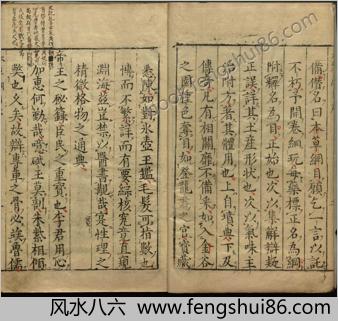 備僭名曰本草綱目願乞一言以託
不朽予開卷細玩每藥標正名為綱
附釋名為目正始也次以集解辯疑
正誤詳其土產形狀也次以氣味主
治附方著其體用也上自墳典下及
傳奇凡有相關靡不備采如入金谷
之園種色奪目如登龍君之宮寶藏
悉陳如對氷壺玉鑑毛髮可指數也
博而不繁詳而有要綜核究竟直窺
淵海茲豈禁以醫書覯哉寔性理之
精微格物之通典
帝王之秘籙臣民之重寶也李君用心
加惠何勤哉噫碔玉莫剖朱紫相傾
獘也久矣故辯專車之骨必竢魯儒
风水八六 www.fengshui86.com